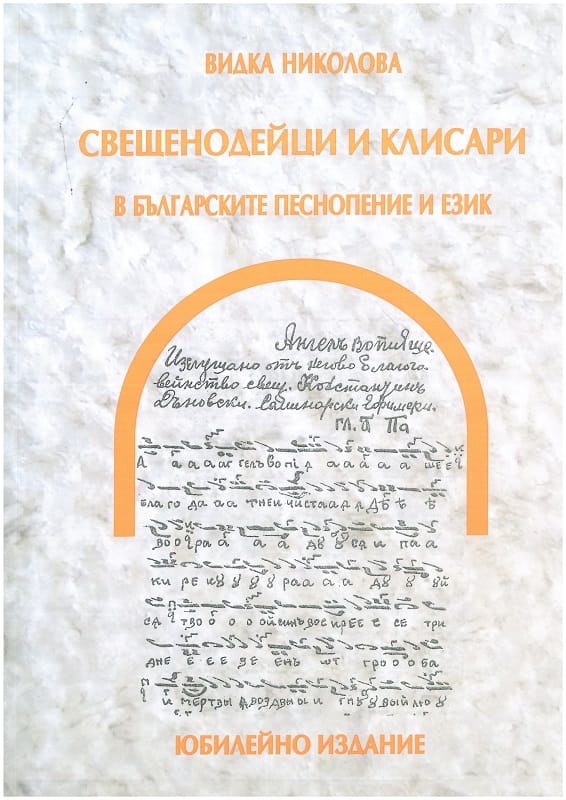 ВИДКА НИКОЛОВА
СВЕЩЕНОДЕЙЦИ И КЛИСАРИ
В БЪЛГАРСКИТЕ ПЕСНОПЕНИЕ И ЕЗИК
Ангелъ вопияще.
Излущано отъ негово благого-
вейнство свещ. Констанџинъ
Дъновски.
гл. Па
А а а а аг гелъ вопі я а а а а а ше е
благо да а а тнеи чистаа а а
во о гра а а а ду у ся и па а
ки ре ку у у у ра а а а ду у уй
ся тво о о о ой сынъ вос кре е с се три
дне е е е зе енъ шт гро о о ба
и мертвы я воздвы ы и
ЮБИЛЕЙНО ИЗДАНИЕ